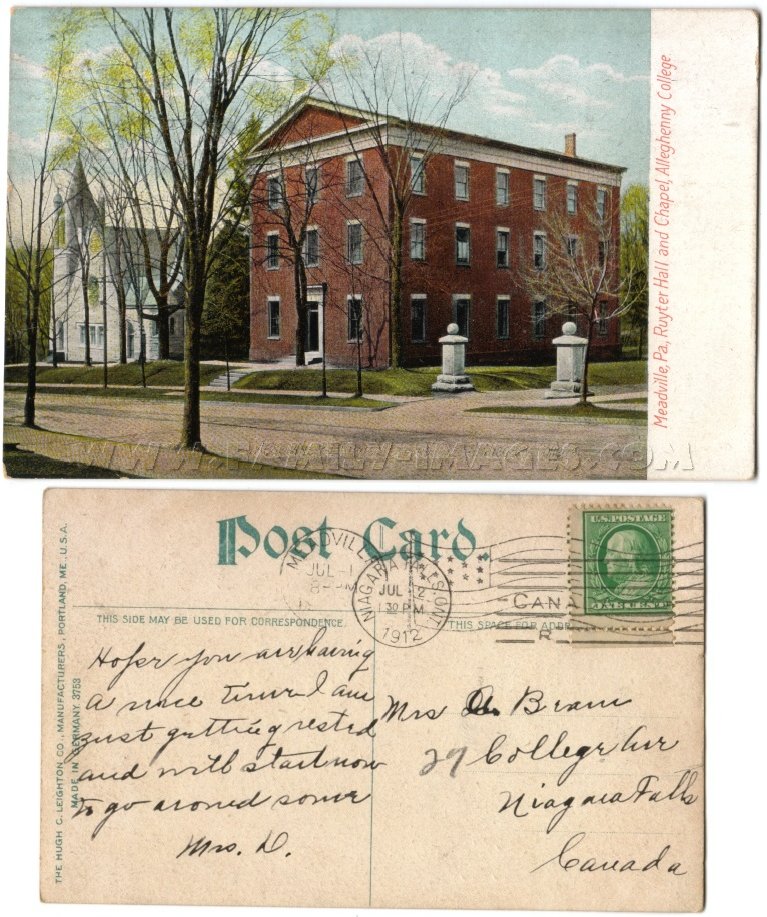 Meadville, Pa., Ruyter Hall and Chapel, Alleghenny College
WWW.FAMILY-IMAGES.COM
Post Card.
THIS SIDE MAY BE USED FOR CORRESPONDENCE.
THIS SPACE FOR ADDR
THE HUGH C. LEIGHTON CO., MANUFACTURERS, PORTLAND, ME., U.S.A.
MADE IN GERMANY 3753
MEADVILLE
JUL-1
NIAGARA FALLS, ONT.
JUL 2
30 PM
1912
CANA
U.S. POSTAGE
ONE CENT
Hope you are having
a nice time I am
just getting rested
and will start now
to go around some
Mrs. D.
Mrs A. Beam
27 College Ave
Niagara Falls
Canada